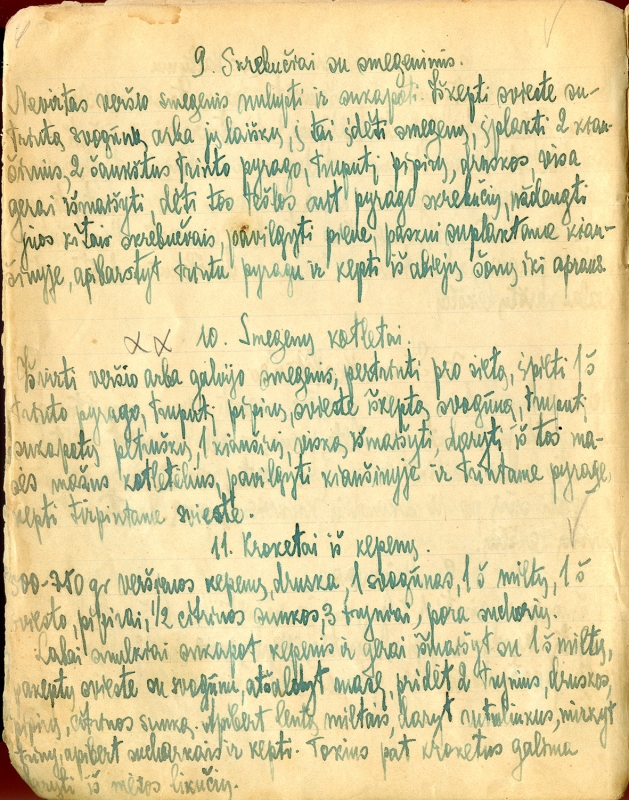 9. Skrebučiai su smegenimis.
Nevirtas veršio smegenis nulupti ir sukapoti. Iškepti svieste su-
trintą svogūną arba jų laiškų, į tai įdėti smegenų, įplakti 2 kiau-
šinius, 2 šaukštus trinto pyrago, truputį pipirų, druskos, visa
gerai išmaišyti, dėti tos tešlos ant pyrago skrebučių, uždengti
juos kitais skrebučiais, pavilgyti piene, paskui suplaktame kiau-
šinyje, apibarstyt trintu pyragu ir kepti iš abiejų šonų iki apraus.
10. Smegenų kotletai.
Išvirti veršio arba galvijo smegenis, pertrinti pro sietą, įpilti 1 š
trinto pyrago, truputį pipirų, svieste iškeptą svogūną, truputį
sukapotų petruškų, 1 kiaušinį, viską išmaišyti, daryti iš tos ma-
sės mažus kotletėlius, pavilgyti kiaušinyje ir trintame pyrage,
kepti tirpintame svieste.
11. Kroketai iš kepenų.
500-750 gr veršienos kepenų, druska, 1 svogūnas, 1 š miltų, 1 š
sviesto, pipirai, 1/2 citrinos sunkos, 3 tryniai, pora sucharių.
Labai smulkiai sukapot kepenis ir gerai išmaišyt su 1 š miltų,
pakeptų svieste su svogūnu, atšaldyt masę, pridėt 2 trynius, druskos,
pipirų, citrinos sunką. Apibert lentą miltais, daryt rutuliukus, mirkyt
trynį, apibert sucharkais ir kepti. Tokius pat kroketus galima
daryti iš mėsos likučių.